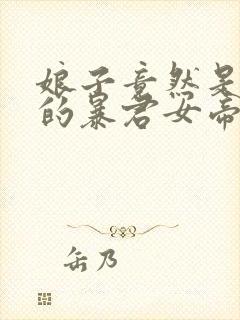 娘子竟然是
的暴君女帝
缶乃